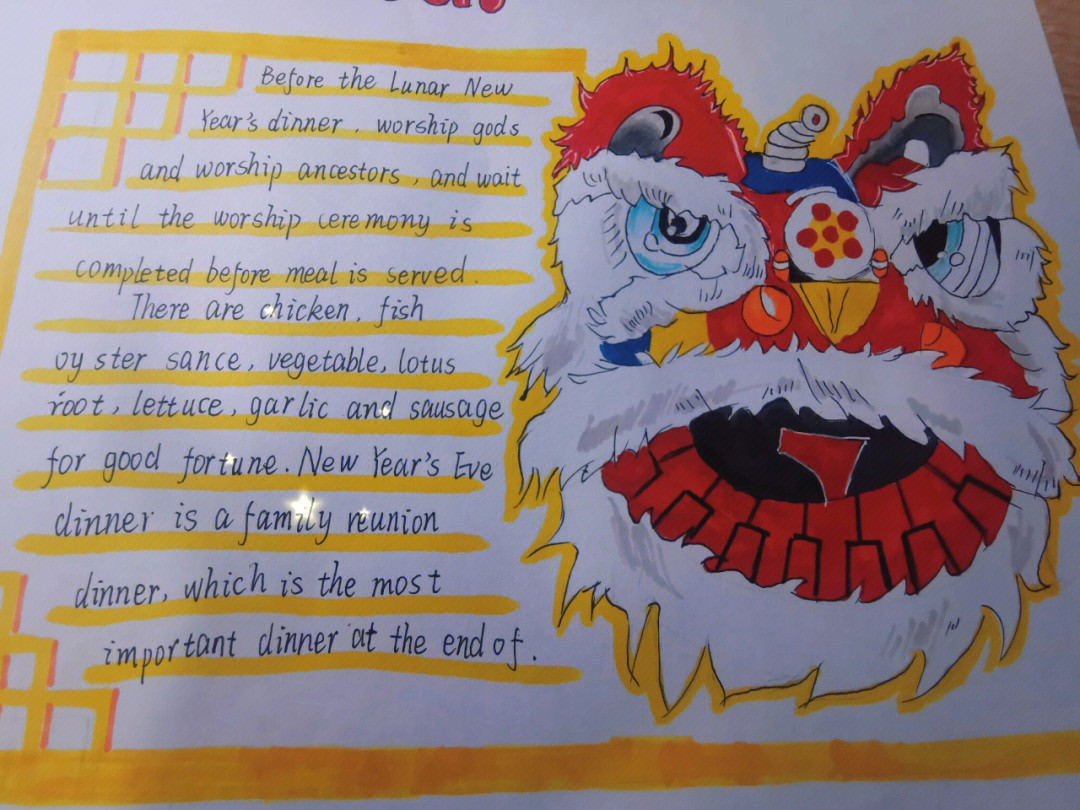 Before the Lunar New
Year's dinner, worship gods
and worship ancestors, and wait
until the worship ceremony is
completed before meal is served.
There are chicken, fish
oy ster sance, vegetable, lotus
root, lettuce, garlic and sausage
for good fortune. New Year's Eve
dinner is a family reunion
dinner, which is the most
important dinner at the end of.